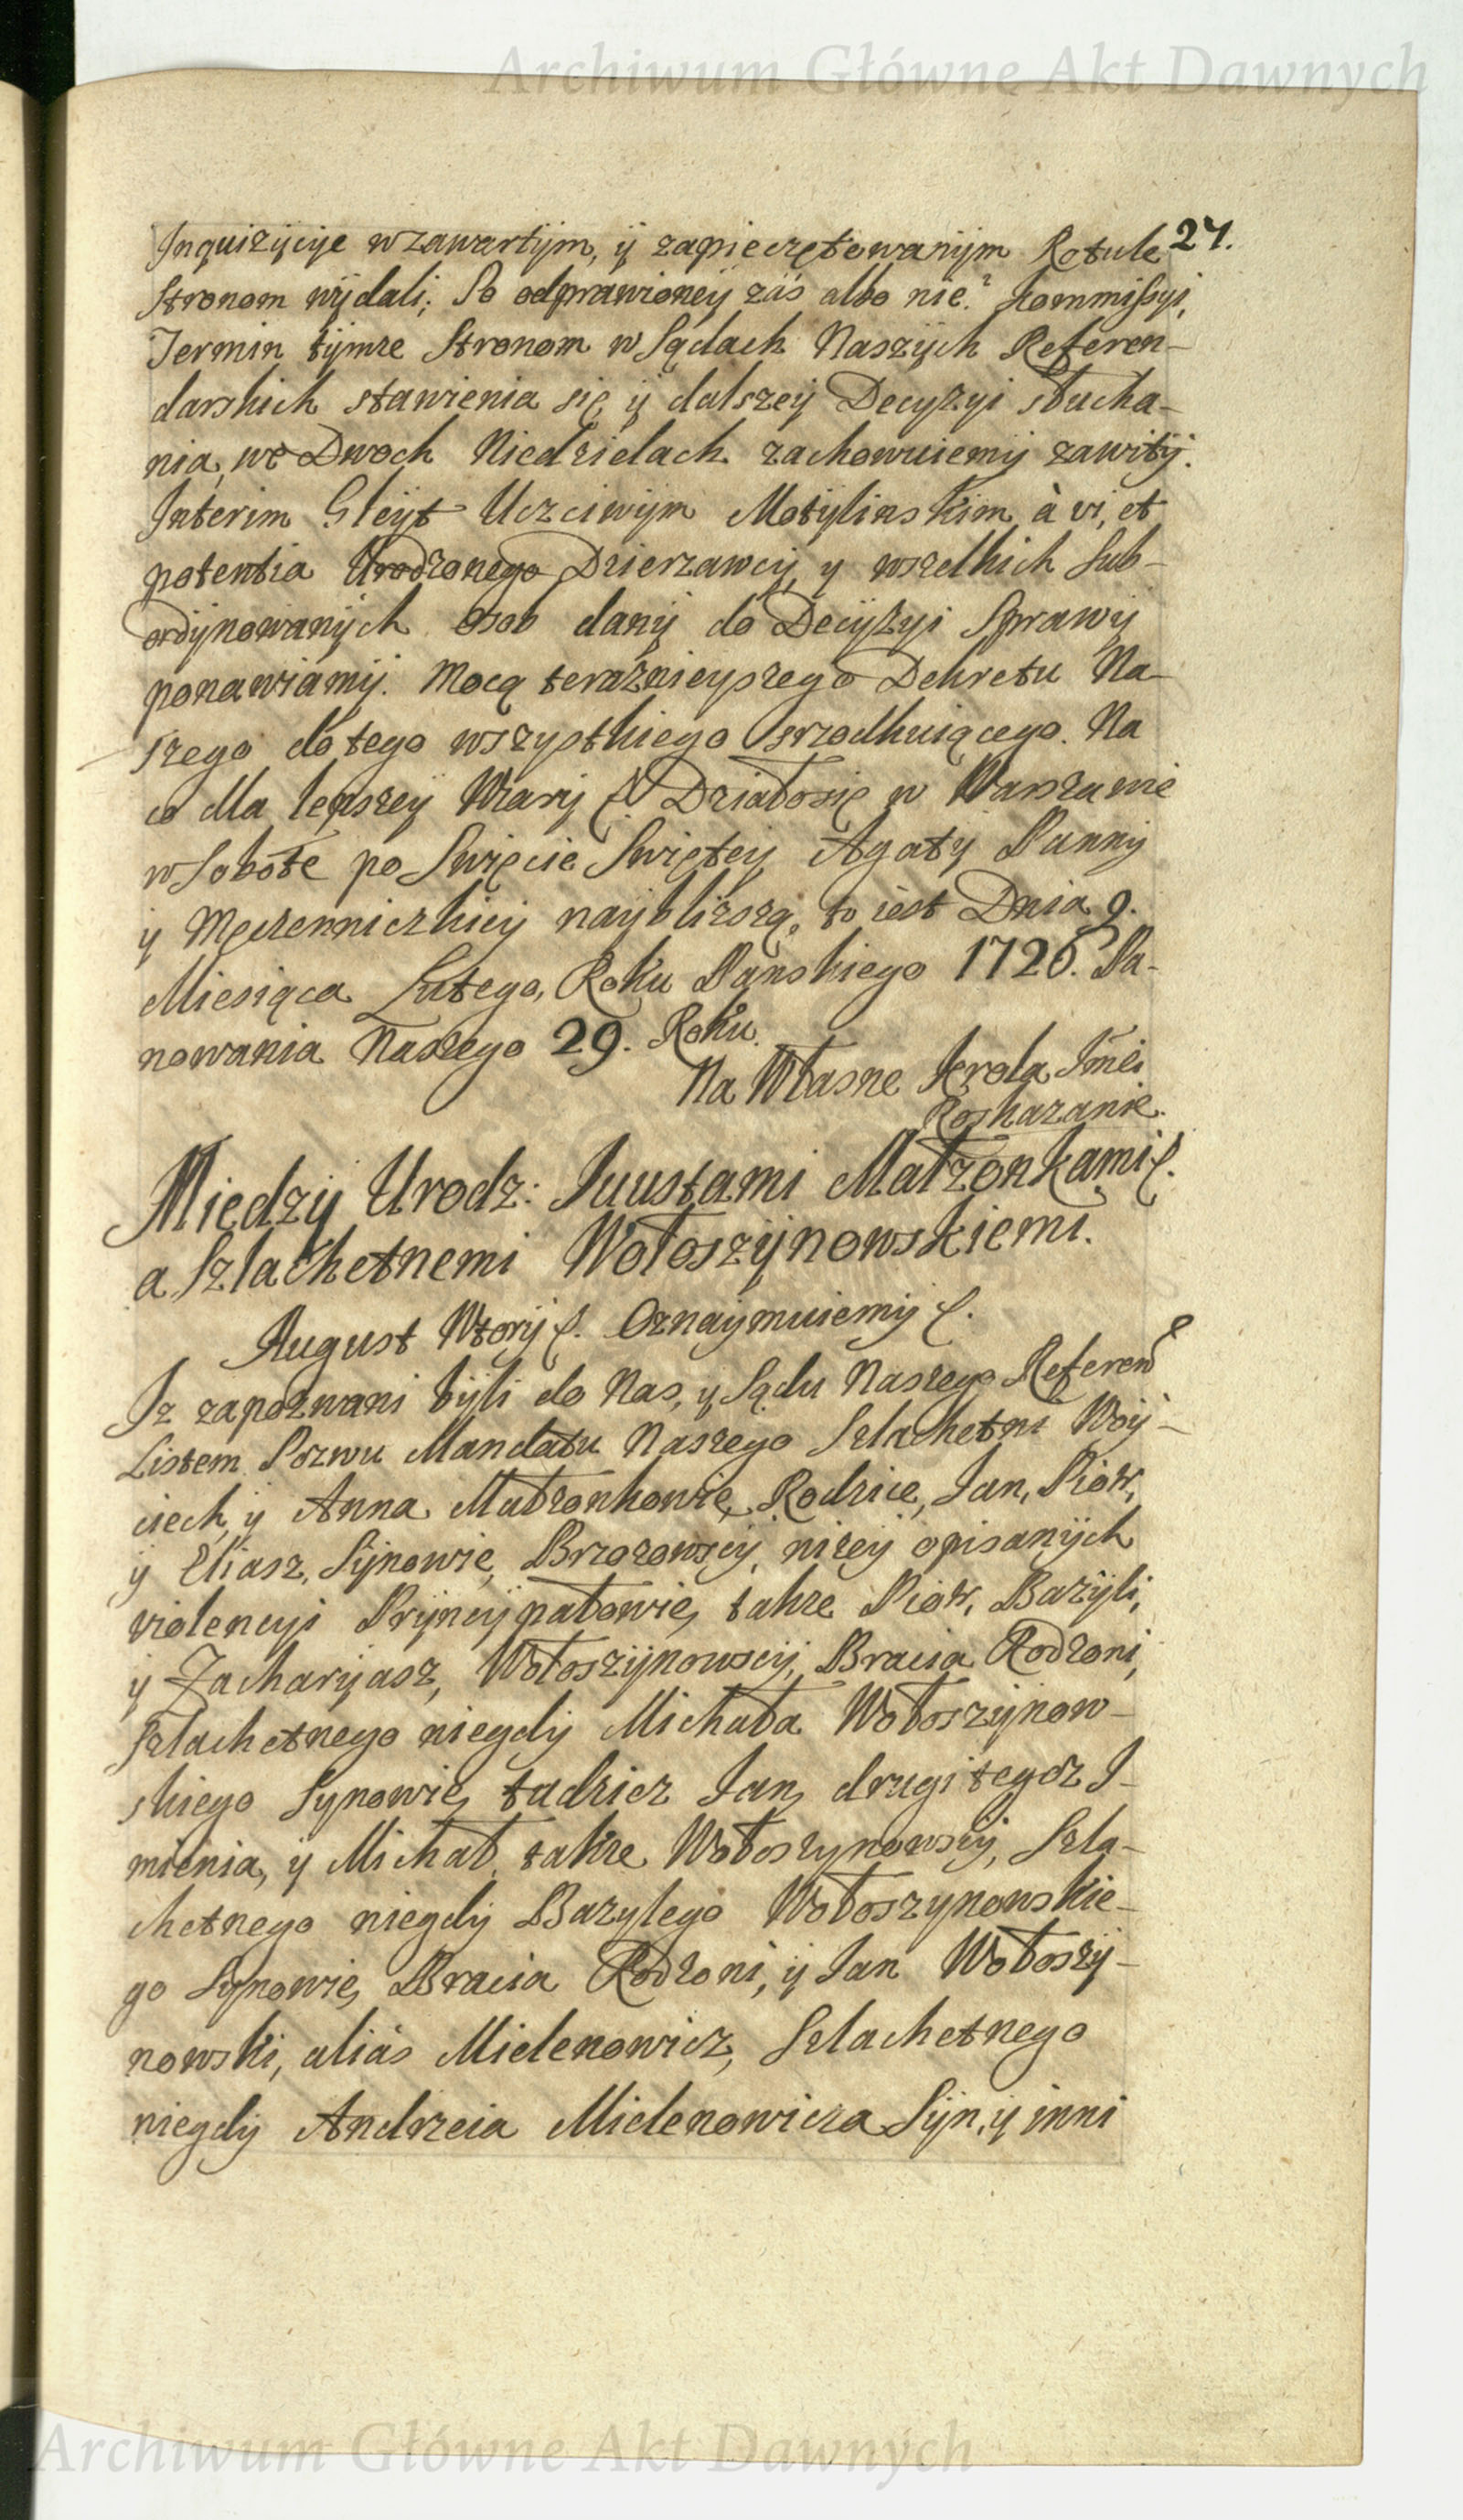 Archiwum Główne Akt Dawnych
27.
Inquizycye w zawartÿm, ÿ zapieczętowanÿm Rotule
Stronom wÿdali; Po odprawioneÿ záś albo nie? Kommissyi,
Termin tÿmże Stronom w Sądach Naszÿch Referen-
darskich stawienia się, ÿ dalszeÿ Decyzyi słucha-
nia, we Dwoch Niedzielach zachowuiemÿ zawitÿ.
Interim Gleÿt Uczciwÿm Motÿlinskim à vi, et
potentia Urodzonego Dzierzawcÿ, y wszelkich Sub-
ordÿnowanÿch osob danÿ do Decÿzyi Sprawÿ
ponawiamÿ. Mocą teraznieyszego Dekretu Na-
szego do tego wszystkiego srzodkuiącego. Na
co dla lepszeÿ Wiarÿ Działosię w Warszawie
w Sobotę po Swięcie Swiętey Agatÿ Pannÿ
ÿ Męczenniczkieÿ nayblizszą, to iest Dnia 9.
Miesiąca Lutego, Roku Panskiego 1726. Pa-
nowania Naszego 29. Roku.
Na Własne Krola Jmći
Roskazanie.
Miedzÿ Urodz: Juustami Małzonkami
a Szlachetnemi Wołoszÿnowskiemi.
August Wtorÿ Oznaymuiemÿ
Iz zapozwani bÿli do Nas, ÿ Sądu Naszego Referen
Listem Pozwu Mandatu Naszego Szlachetni Woÿ-
ciech, ÿ Anna Małzonkowie, Rodzice, Jan, Piotr,
ÿ Eliasz, Sÿnowie, Brzozowscÿ, nizeÿ opisanÿch
violencyi Prÿncÿpałowie, takze Piotr, Bazÿli,
ÿ Zacharÿasz, Wołoszÿnowscÿ, Bracia Rodzoni,
Szlachetnego niegdÿ Michała Wołoszÿnow-
skiego Synowie, tudziez Jan, drugi tegoz I-
mienia, ÿ Michał, takze Wołoszynowscÿ, Szla-
chetnego niegdÿ Bazylego Wołoszynowskie-
go Synowie, Bracia Rodzoni, ÿ Jan Wołoszÿ-
nowski, aliás Mielenowicz, Szlachetnego
niegdÿ Andrzeia Mielenowicza Sÿn, ÿ inni
Archiwum Główne Akt Dawnych